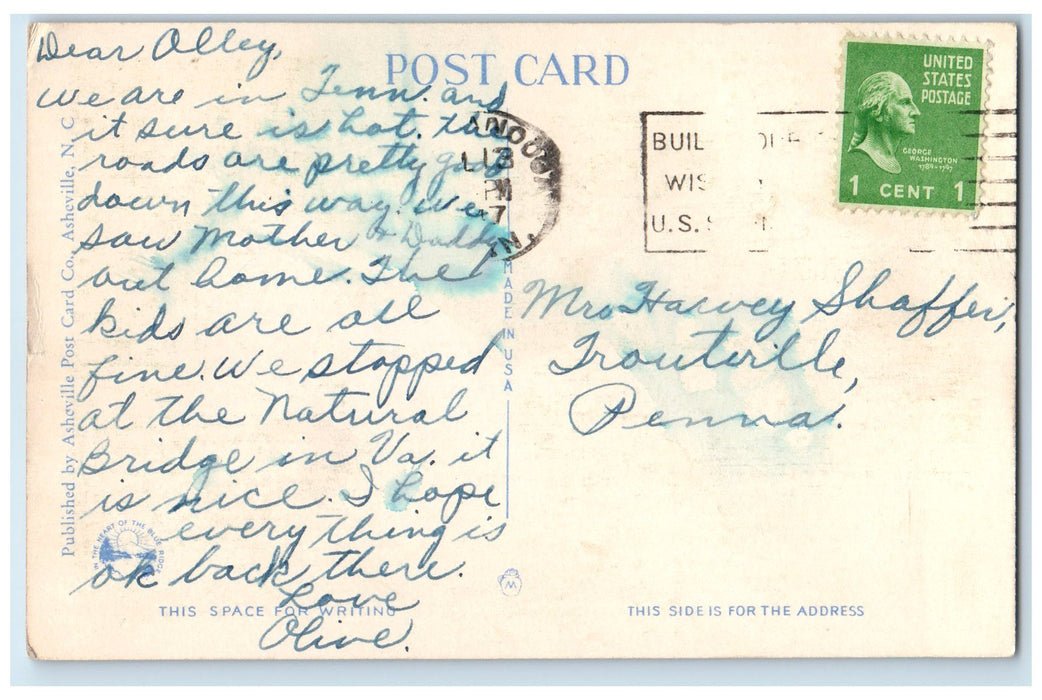 Dear Olley,
We are in Tenn. and
it sure is hot. The
roads are pretty good
down this way. We
saw Mother & Daddy
out home. The
kids are all
fine. We stopped
at the Natural
Bridge in Va. it
is nice. I hope
everything is
ok back there.
Love
Olive.
POST CARD
Published by Asheville Post Card Co., Asheville, N. C.
IN THE HEART OF THE BLUE RIDGE
THIS SPACE FOR WRITING
MADE IN USA
W
PM
BUIL
WIS
U.S.
UNITED
STATES
POSTAGE
GEORGE
WASHINGTON
1789-1797
1 CENT 1
Mrs Harvey Shaffer,
Troutville,
Penna.
THIS SIDE IS FOR THE ADDRESS